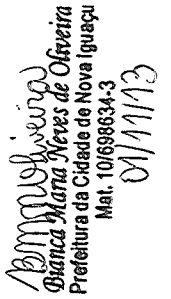 Bianca Maria Neves de Oliveira
Prefeitura da Cidade de Nova Iguaçu
Mat. 10/698634-3
01/11/13